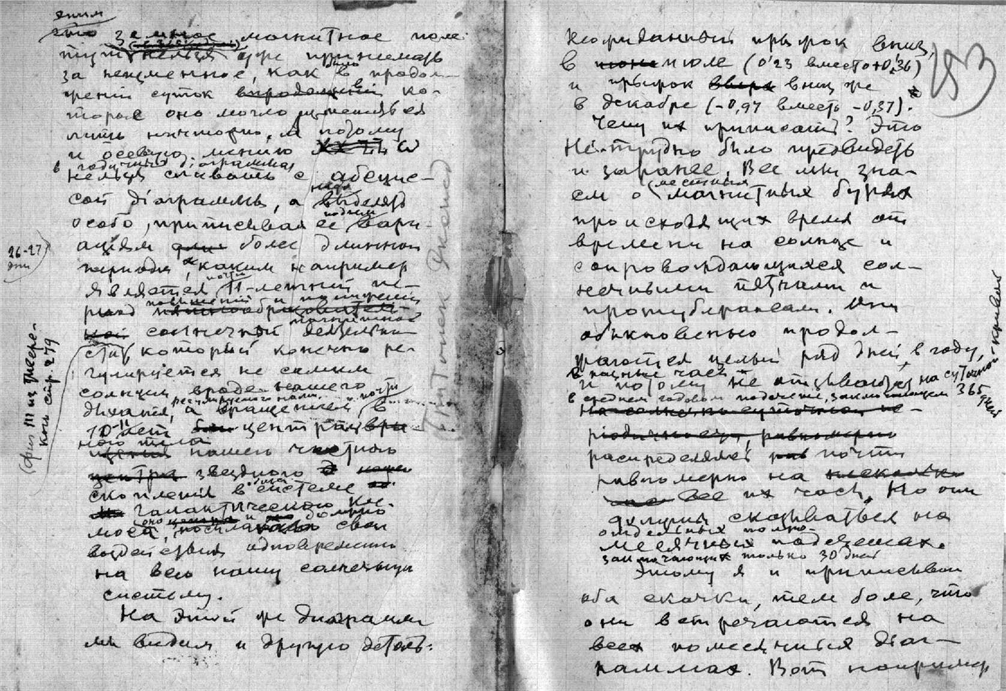 этим
это земное магнитное поле
нельзя уже принимать
за неизменное, как было в продол-
жении суток ко-
торое оно могло изменяться
лишь ничтожно, а потому
и осевую линию ω
в годичных диаграммах
нельзя сливать с абсцис-
сой діаграммы, а надо
особо, приписывая ее вари-
ациям более длинного
периода, каким например
является почти 11-летний пе-
риод повышений и понижений
солнечной деятельно-
сти который конечно ре-
гулируется не самим
солнцем вроде нашего
дыхания, а вращением в
10-11 лет центра
нашего частного
звездного
скопления в общей системе
галактического кос-
моса, свои
воздействия одновременно
на всю нашу солнечную
систему.
На этой же диаграмме
мы видим и другую деталь:
26-27
дни
(фиг III из
стр. 279
253
Неожиданный прыжок вниз,
в июле (0,23 вместо +0,36)
и прыжок вниз же
в декабре (-0,97 вместо -0,37).
Чему их приписать? Это
не трудно было предвидеть
и заранее. Все мы зна-
ем о местных магнитных бурях
происходящих время от
времени на солнце и
сопровождающихся сол-
нечными пятнами и
протуберансами. Они
обыкновенно продол-
жаются целый ряд дней, в году,
в разные часы
и потому не отзываются на суточной кривой
в среднем годовом подсчете, заключающем 365 дней
распределяясь почти
равномерно на
все их часы. Но они
должны сказываться на
отдельных
месячных подсчетах.
заключающих только 30 дней
Этому я и приписываю
оба скачки, тем более, что
они встречаются на
всех помесячных діаг-
раммах. Вот например